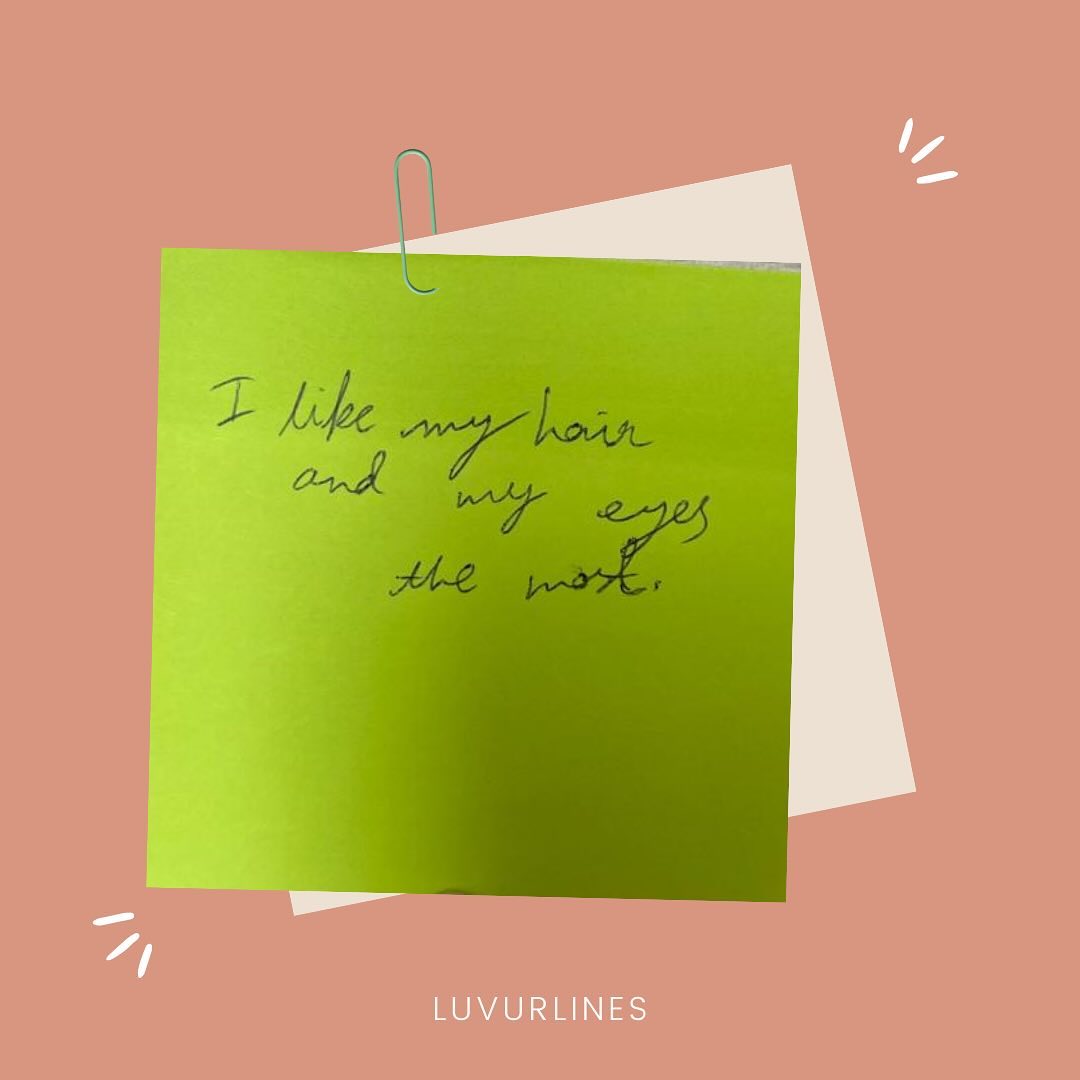 I like my hair
and my eyes
the most.
LUVURLINES